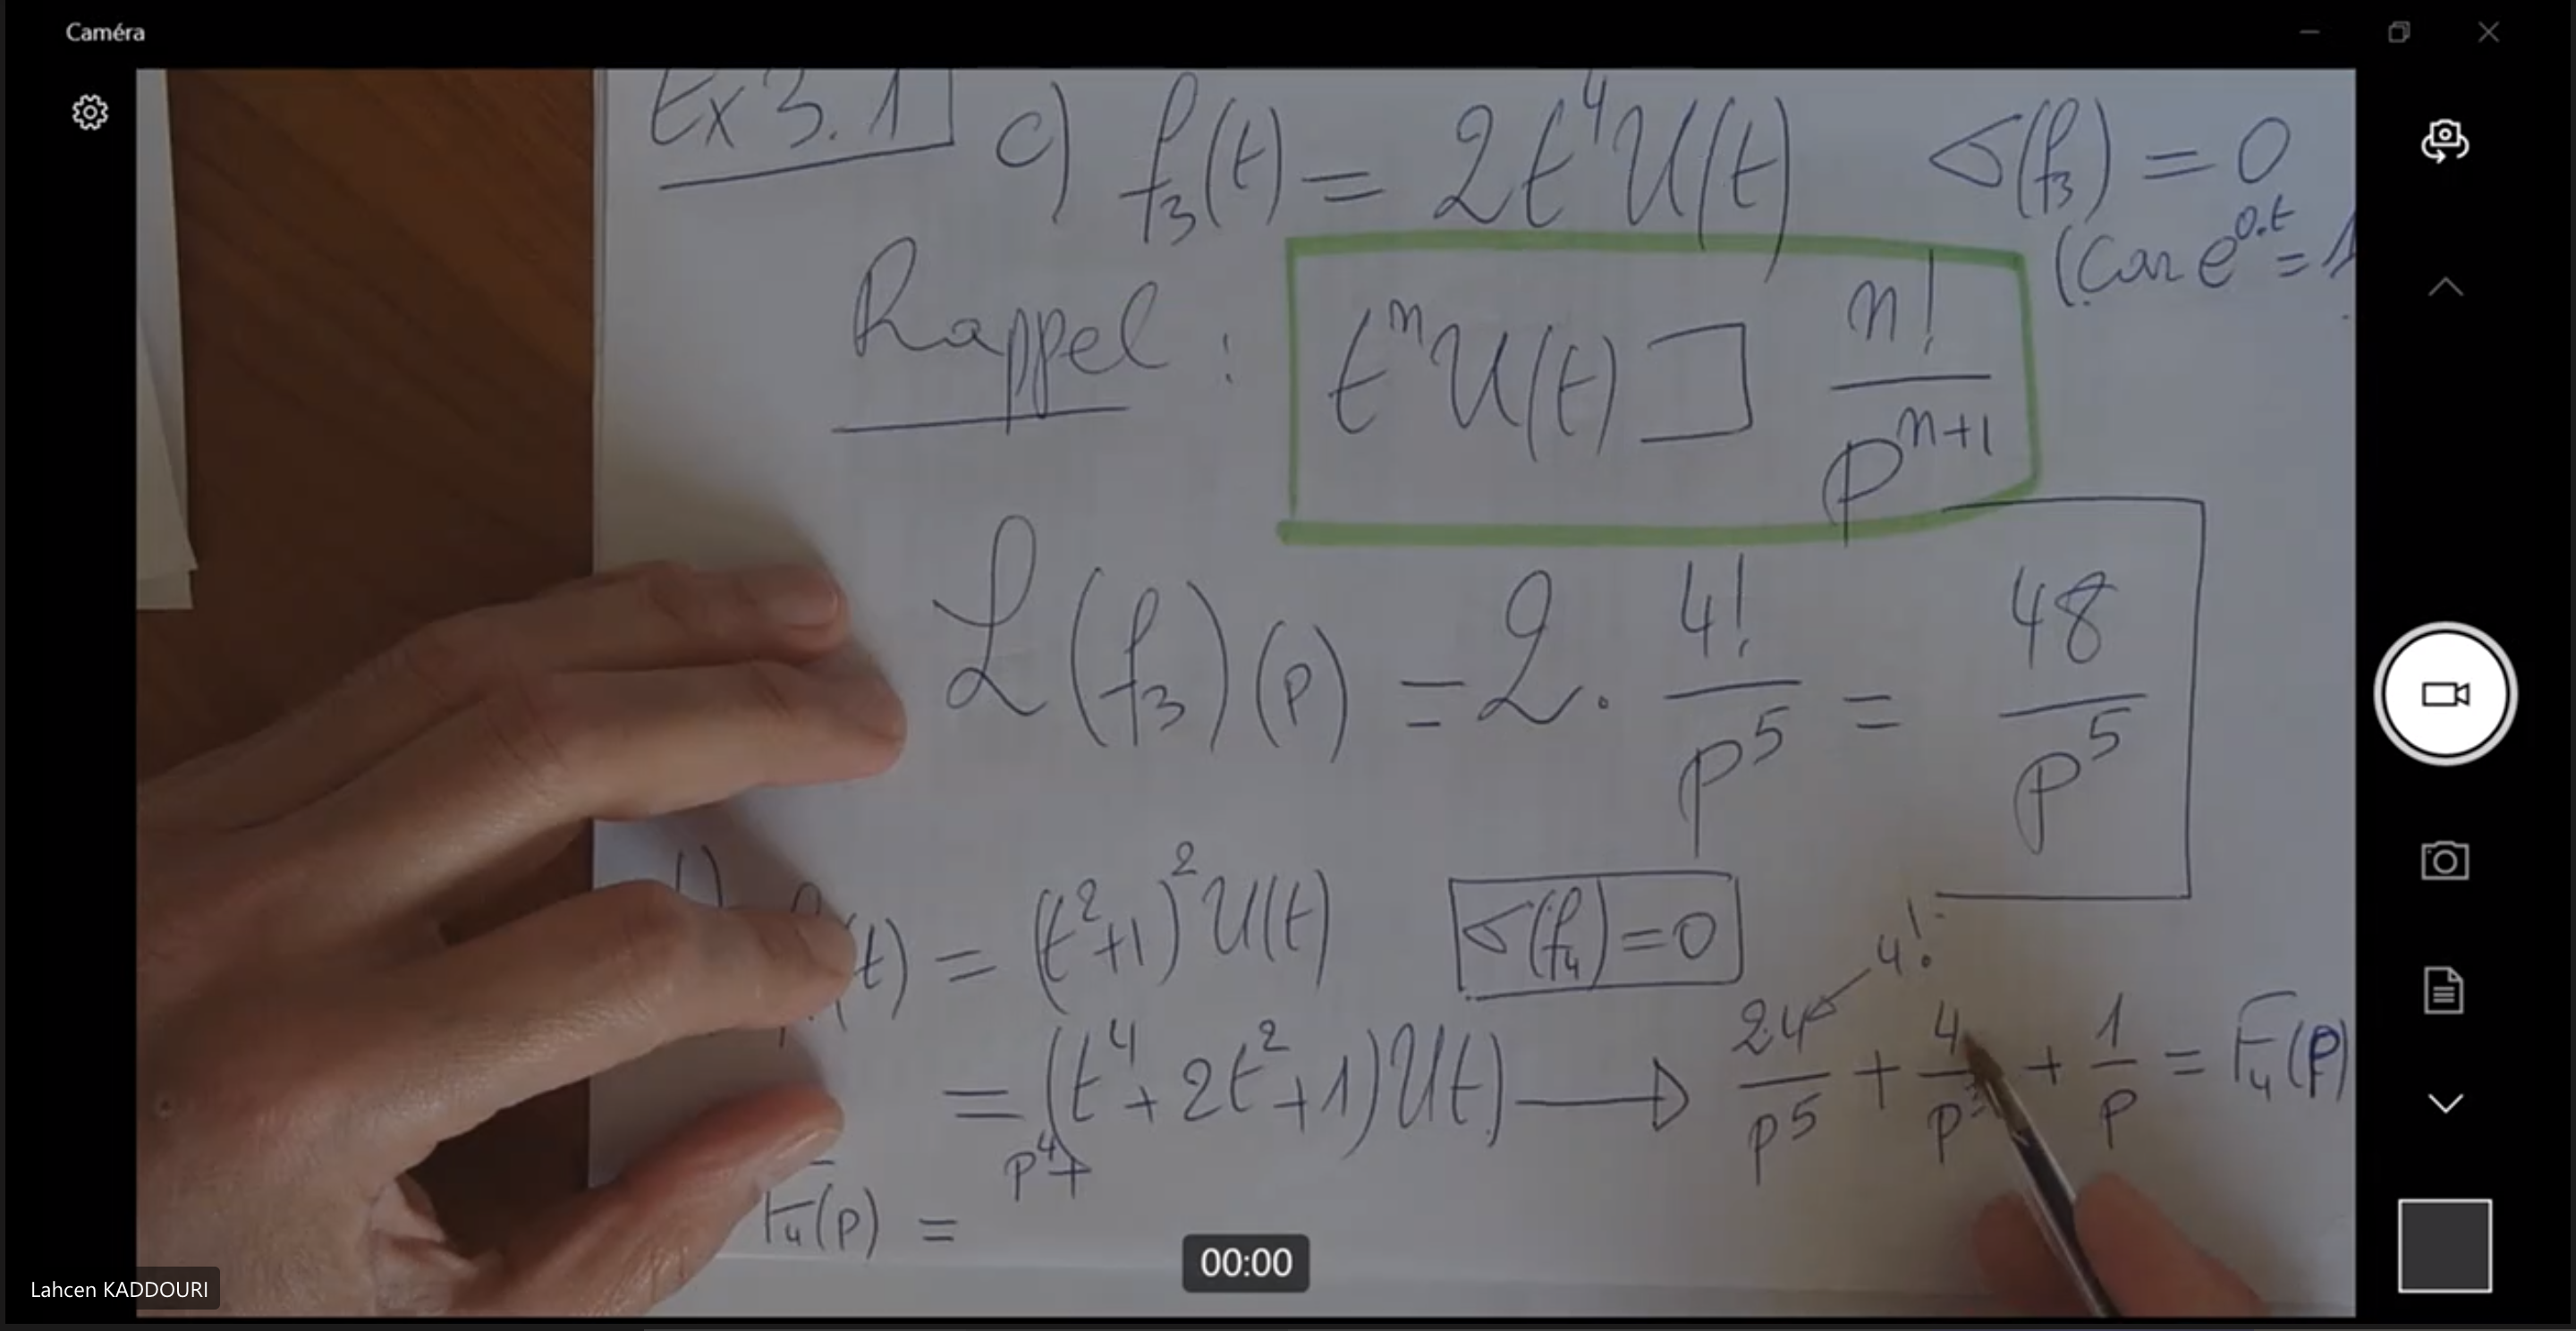 Caméra
Ex 3.1 c) f₃(t) = 2t⁴U(t) σ(f₃) = 0
(Car e^{0.t} = 1
Rappel : tⁿU(t) ⊐ n!/p^{n+1}
ℒ(f₃)(p) = 2 · 4!/p⁵ = 48/p⁵
(t) = (t²+1)²U(t) σ(f₄) = 0
4!
= (t⁴+2t²+1)U(t) → 24/p⁵ + 4/p³ + 1/p = F₄(p)
p⁴+
F₄(p) =
00:00
Lahcen KADDOURI